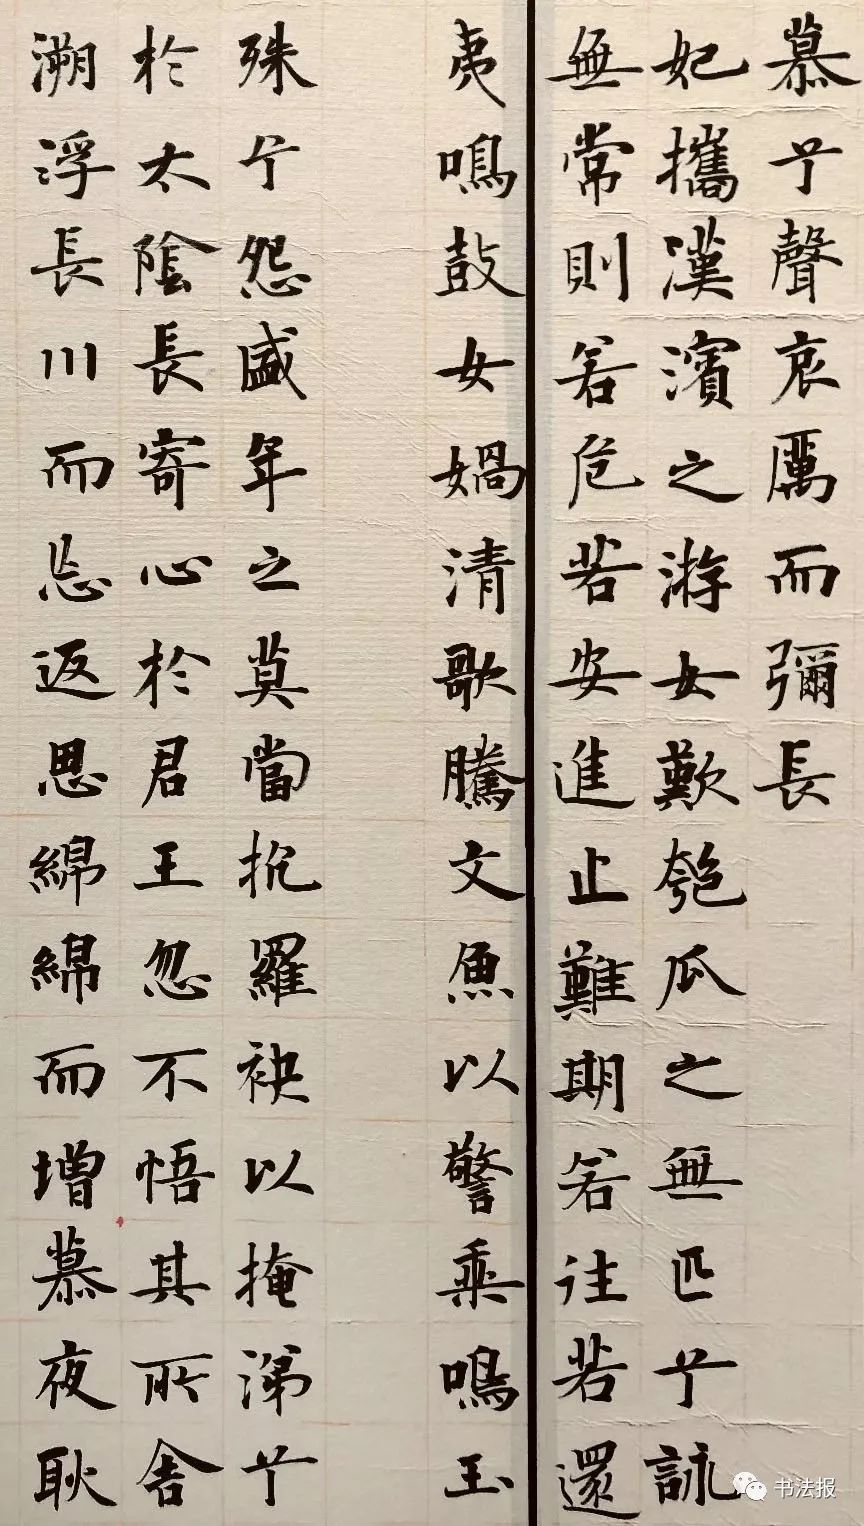 慕兮聲哀厲而彌長
妃攜漢濱之游女歎匏瓜之無匹兮詠
無常則若危若安進止難期若往若還
夷鳴鼓女媧清歌騰文魚以警乘鳴玉
殊兮怨盛年之莫當抗羅袂以掩涕兮
於太陰長寄心於君王忽不悟其所舍
溯浮長川而忘返思綿綿而增慕夜耿
书法报